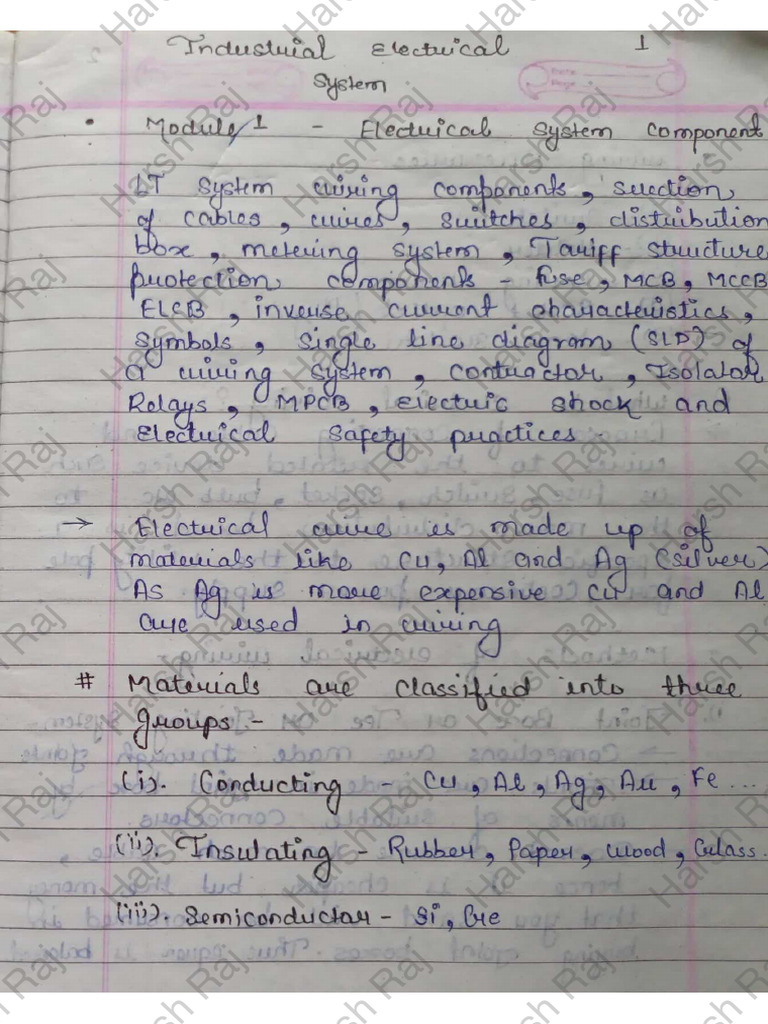 Industrial Electrical 1
System
• Module 1 - Electrical System Component
LT System wiring components, selection
of cables, wires, switches, distribution
box, metering system, Tariff structure
protection components - fuse, MCB, MCCB
ELCB, inverse current characteristics,
symbols, single line diagram (SLD) of
a wiring system, contractor, Isolator
Relays, MPCB, electric shock and
electrical safety practices.
→ Electrical wire is made up of
materials like Cu, Al and Ag (silver)
As Ag is more expensive Cu and Al
are used in wiring
# Materials are classified into three
groups -
(i). Conducting - Cu, Al, Ag, Au, Fe ...
(ii). Insulating - Rubber, Paper, wood, Glass.
(iii). Semiconductor - Si, Ge
Harsh Raj